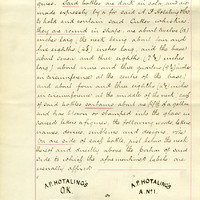 guese. Said bottles are dark in color, and are
made expressly by or for said A.P. Hotaling
to hold and contain said Cutter whiskies
they are round in shape, are about twelve (12)
inches long, the neck being about four and
five eighths (4⅝) inches long, and the base
about seven and three eighths (7⅜) inches
long; about nine and three quarters (9¾) inches
in circumference at the centre of the base;
and about four and three eighths (4⅜) inches
in circumference at the middle of the neck; each
of said bottles contains about one fifth of a gallon
and has blown or stamped into the glass in
raised letters or figures, the following words letters
names devices, emblems and designs, viz:
On one side of each bottle just below the neck
thereof and directly above the portion of said
side to which the aforementioned labels are
usually affixed
A.P. HOTALING'S A.P. HOTALING'S
OK or A No 1.